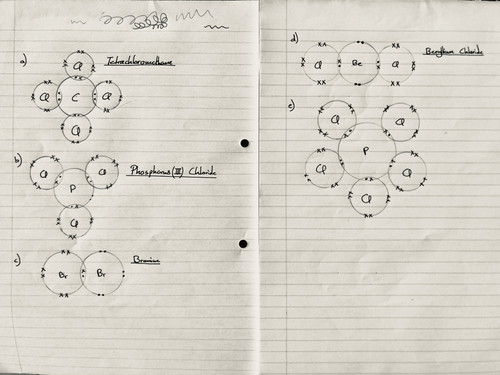 a) Tetrachloromethane
Cl
Cl C Cl
Cl
b) Phosphorus (III) Chloride
Cl Cl
P
Cl
c) Bromine
Br Br
d) Beryllium Chloride
Cl Be Cl
e)
Cl Cl
P
Cl Cl
Cl